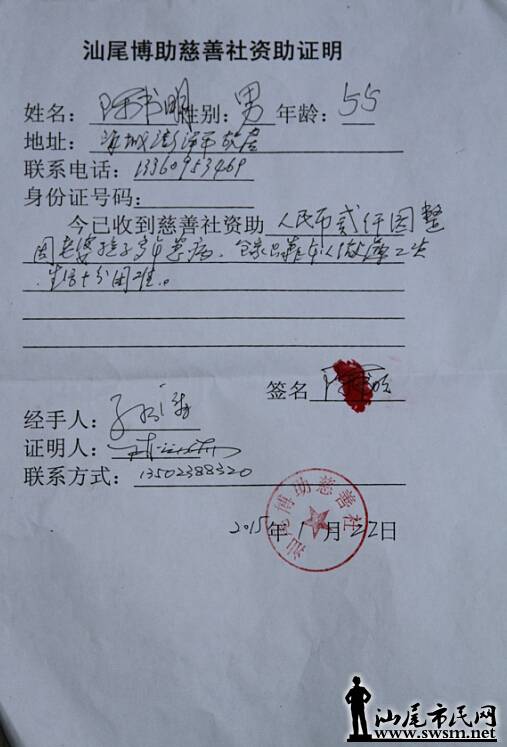 汕尾博助慈善社资助证明
姓名：陈书明性别：男年龄：55
地址：海城
联系电话：13360953469
身份证号码：
今已收到慈善社资助人民币贰仟圆整
因老婆孩子 病，全家只靠本人做 工
生活十分困难。
签名
经手人：
证明人：
联系方式：13502388320
汕尾博助慈善社
2015年1月22日
汕尾市民网
www.swsm.net